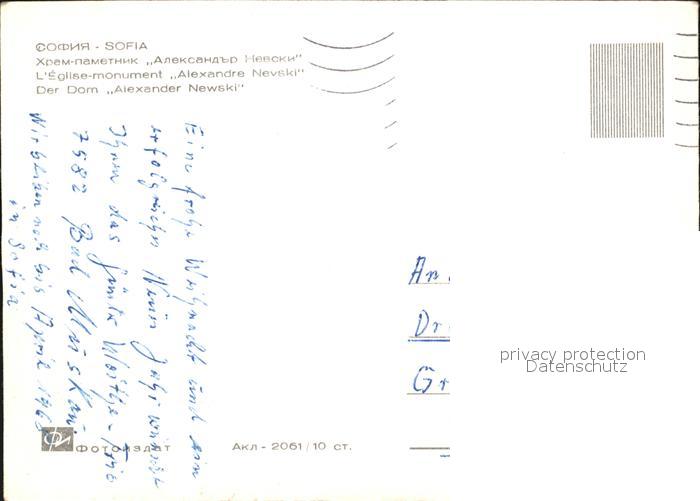 СОФИЯ - SOFIA
Храм-паметник „Александър Невски"
L'Église-monument „Alexandre Nevski"
Der Dom „Alexander Newski"
Eine frohe Weihnacht und ein
erfolgreiches Neues Jahr wünscht
Ihnen das
7582 Bad Muskau
Wir bleiben noch bis April 1963
in Sofia
An
Dr
Gr
privacy protection
Datenschutz
Фотоиздат Акл - 2061/10 ст.